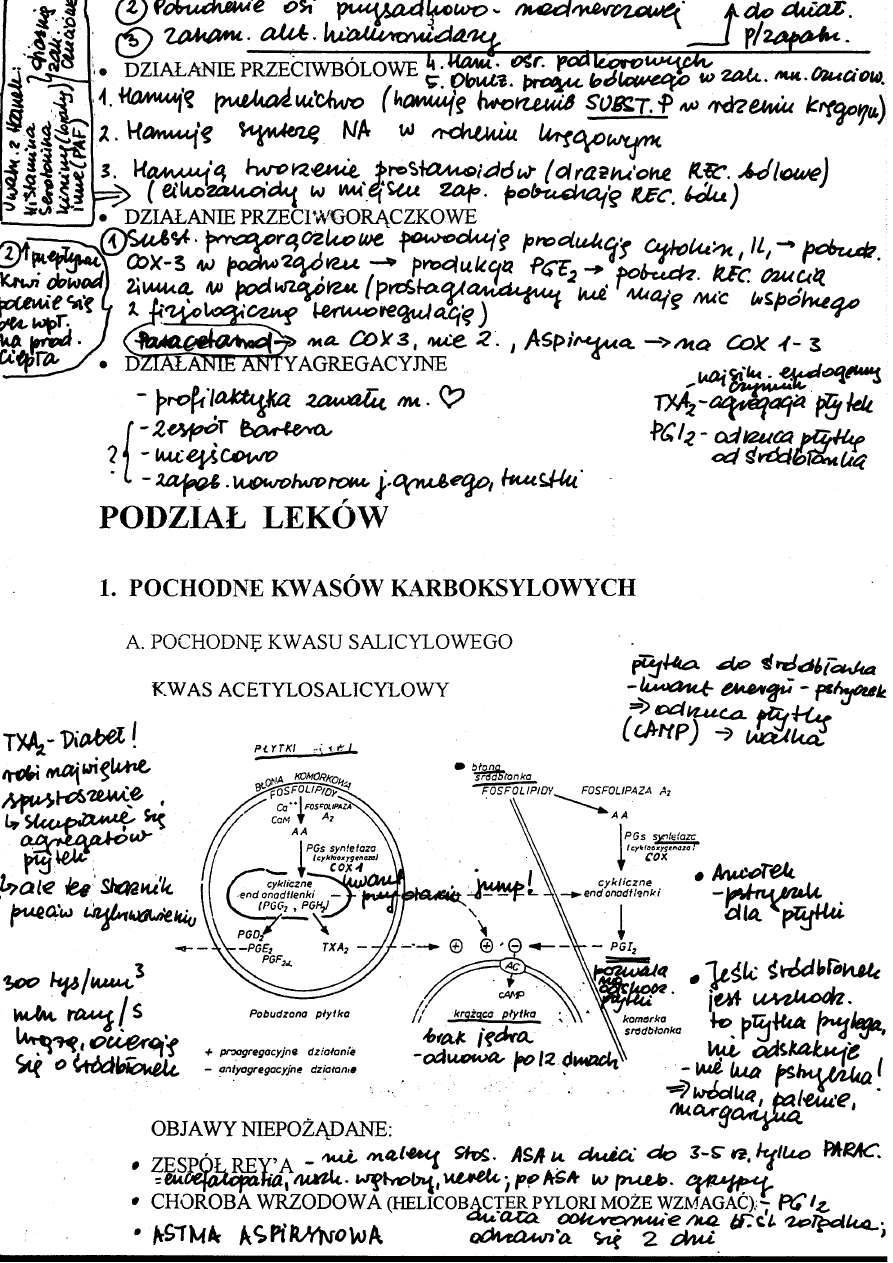 2) Pobudzenie osi przysadkowo-nadnerczowej
3) zaham. akt. hialuronidazy
↑ do dział.
p/zapaln.
Uwaln. z tkanek:
Histamina
Serotonina
kininy (brady)
inne (PAF)
• DZIAŁANIE PRZECIWBÓLOWE 4. Ham. ośr. podkorowych
5. Obniż. progu bólowego w zak. nn. czuciow.
1. Hamują przekaźnictwo (hamują tworzenie SUBST. P w rdzeniu kręgow)
2. Hamują syntezę NA w rdzeniu kręgowym
3. Hamują tworzenie prostanoidów (drażnione REC. bólowe)
(eikozanoidy w miejscu zap. pobudzają REC. bólu)
• DZIAŁANIE PRZECIWGORĄCZKOWE
1) Subst. progorączkowe powodują produkcję cytokin, IL, → pobudz.
COX-3 w podwzgórzu → produkcja PGE₂ → pobudz. REC. czucia
zimna w podwzgórzu (prostaglandyny nie mają nic wspólnego
z fizjologiczną termoregulacją)
Paracetamol → na COX3, nie 2., Aspiryna → na COX 1-3
2) ↑ przepływu
krwi obwod
pocenie się
bez wpł.
na prod.
ciepła
• DZIAŁANIE ANTYAGREGACYJNE
- profilaktyka zawału m. ♡
- Zespół Bartera
? - miejscowo
- zapob. nowotworom j. grubego, trzustki
najsiln. endogenny
czynnik
TXA₂ - agregacja płytek
PGI₂ - odrzuca płytkę
od śródbłonka
PODZIAŁ LEKÓW
1. POCHODNE KWASÓW KARBOKSYLOWYCH
A. POCHODNE KWASU SALICYLOWEGO
KWAS ACETYLOSALICYLOWY
płytka do śródbłonka
- kwant energii - pstryczek
⇒ odrzuca płytkę
(cAMP) → walka
TXA₂ - Diabeł!
robi największe
spustoszenie
↳ skupianie się
agregatów
płytek
↳ ale też strażnik
przeciw wykrwawieniu
300 tys/mm³
mln razy/s
krążą, ocierają
się o śródbłonek
PŁYTKI
BŁONA KOMÓRKOWA
FOSFOLIPIDY
Ca⁺⁺ FOSFOLIPAZA
CaM A₂
AA
PGs syntetaza
(cyklooxygenaza)
COX 1
cykliczne
endonadtlenki
(PGG₂, PGH₂)
kwant
jump!
PGD₂
PGE₂
PGF₂α
TXA₂
Pobudzona płytka
+ proagregacyjne działanie
- antyagregacyjne działanie
• błona
śródbłonka
FOSFOLIPIDY
FOSFOLIPAZA A₂
AA
PGs syntetaza
(cyklooxygenaza)
COX
cykliczne
endonadtlenki
+ + -
PGI₂
AC
cAMP
krążąca płytka
brak jądra
- odnowa po 12 dniach
pozwala
na
odskocz.
płytki
komórka
śródbłonka
• Aniołek
- pstryczek
dla płytki
• Jeśli śródbłonek
jest uszkodz.
to płytka przylega,
nie odskakuje
- nie ma pstryczka!
⇒ wódka, palenie,
margaryna
OBJAWY NIEPOŻĄDANE:
• ZESPÓŁ REY'A - nie należy stos. ASA u dzieci do 3-5 rż, tylko PARAC.
= encefalopatia, uszk. wątroby, nerek; po ASA w przeb. grypy
• CHOROBA WRZODOWA (HELICOBACTER PYLORI MOŻE WZMAGAĆ) - PGI₂
działa ochronnie na bł. śl. żołądka;
odnawia się 2 dni
• ASTMA ASPIRYNOWA